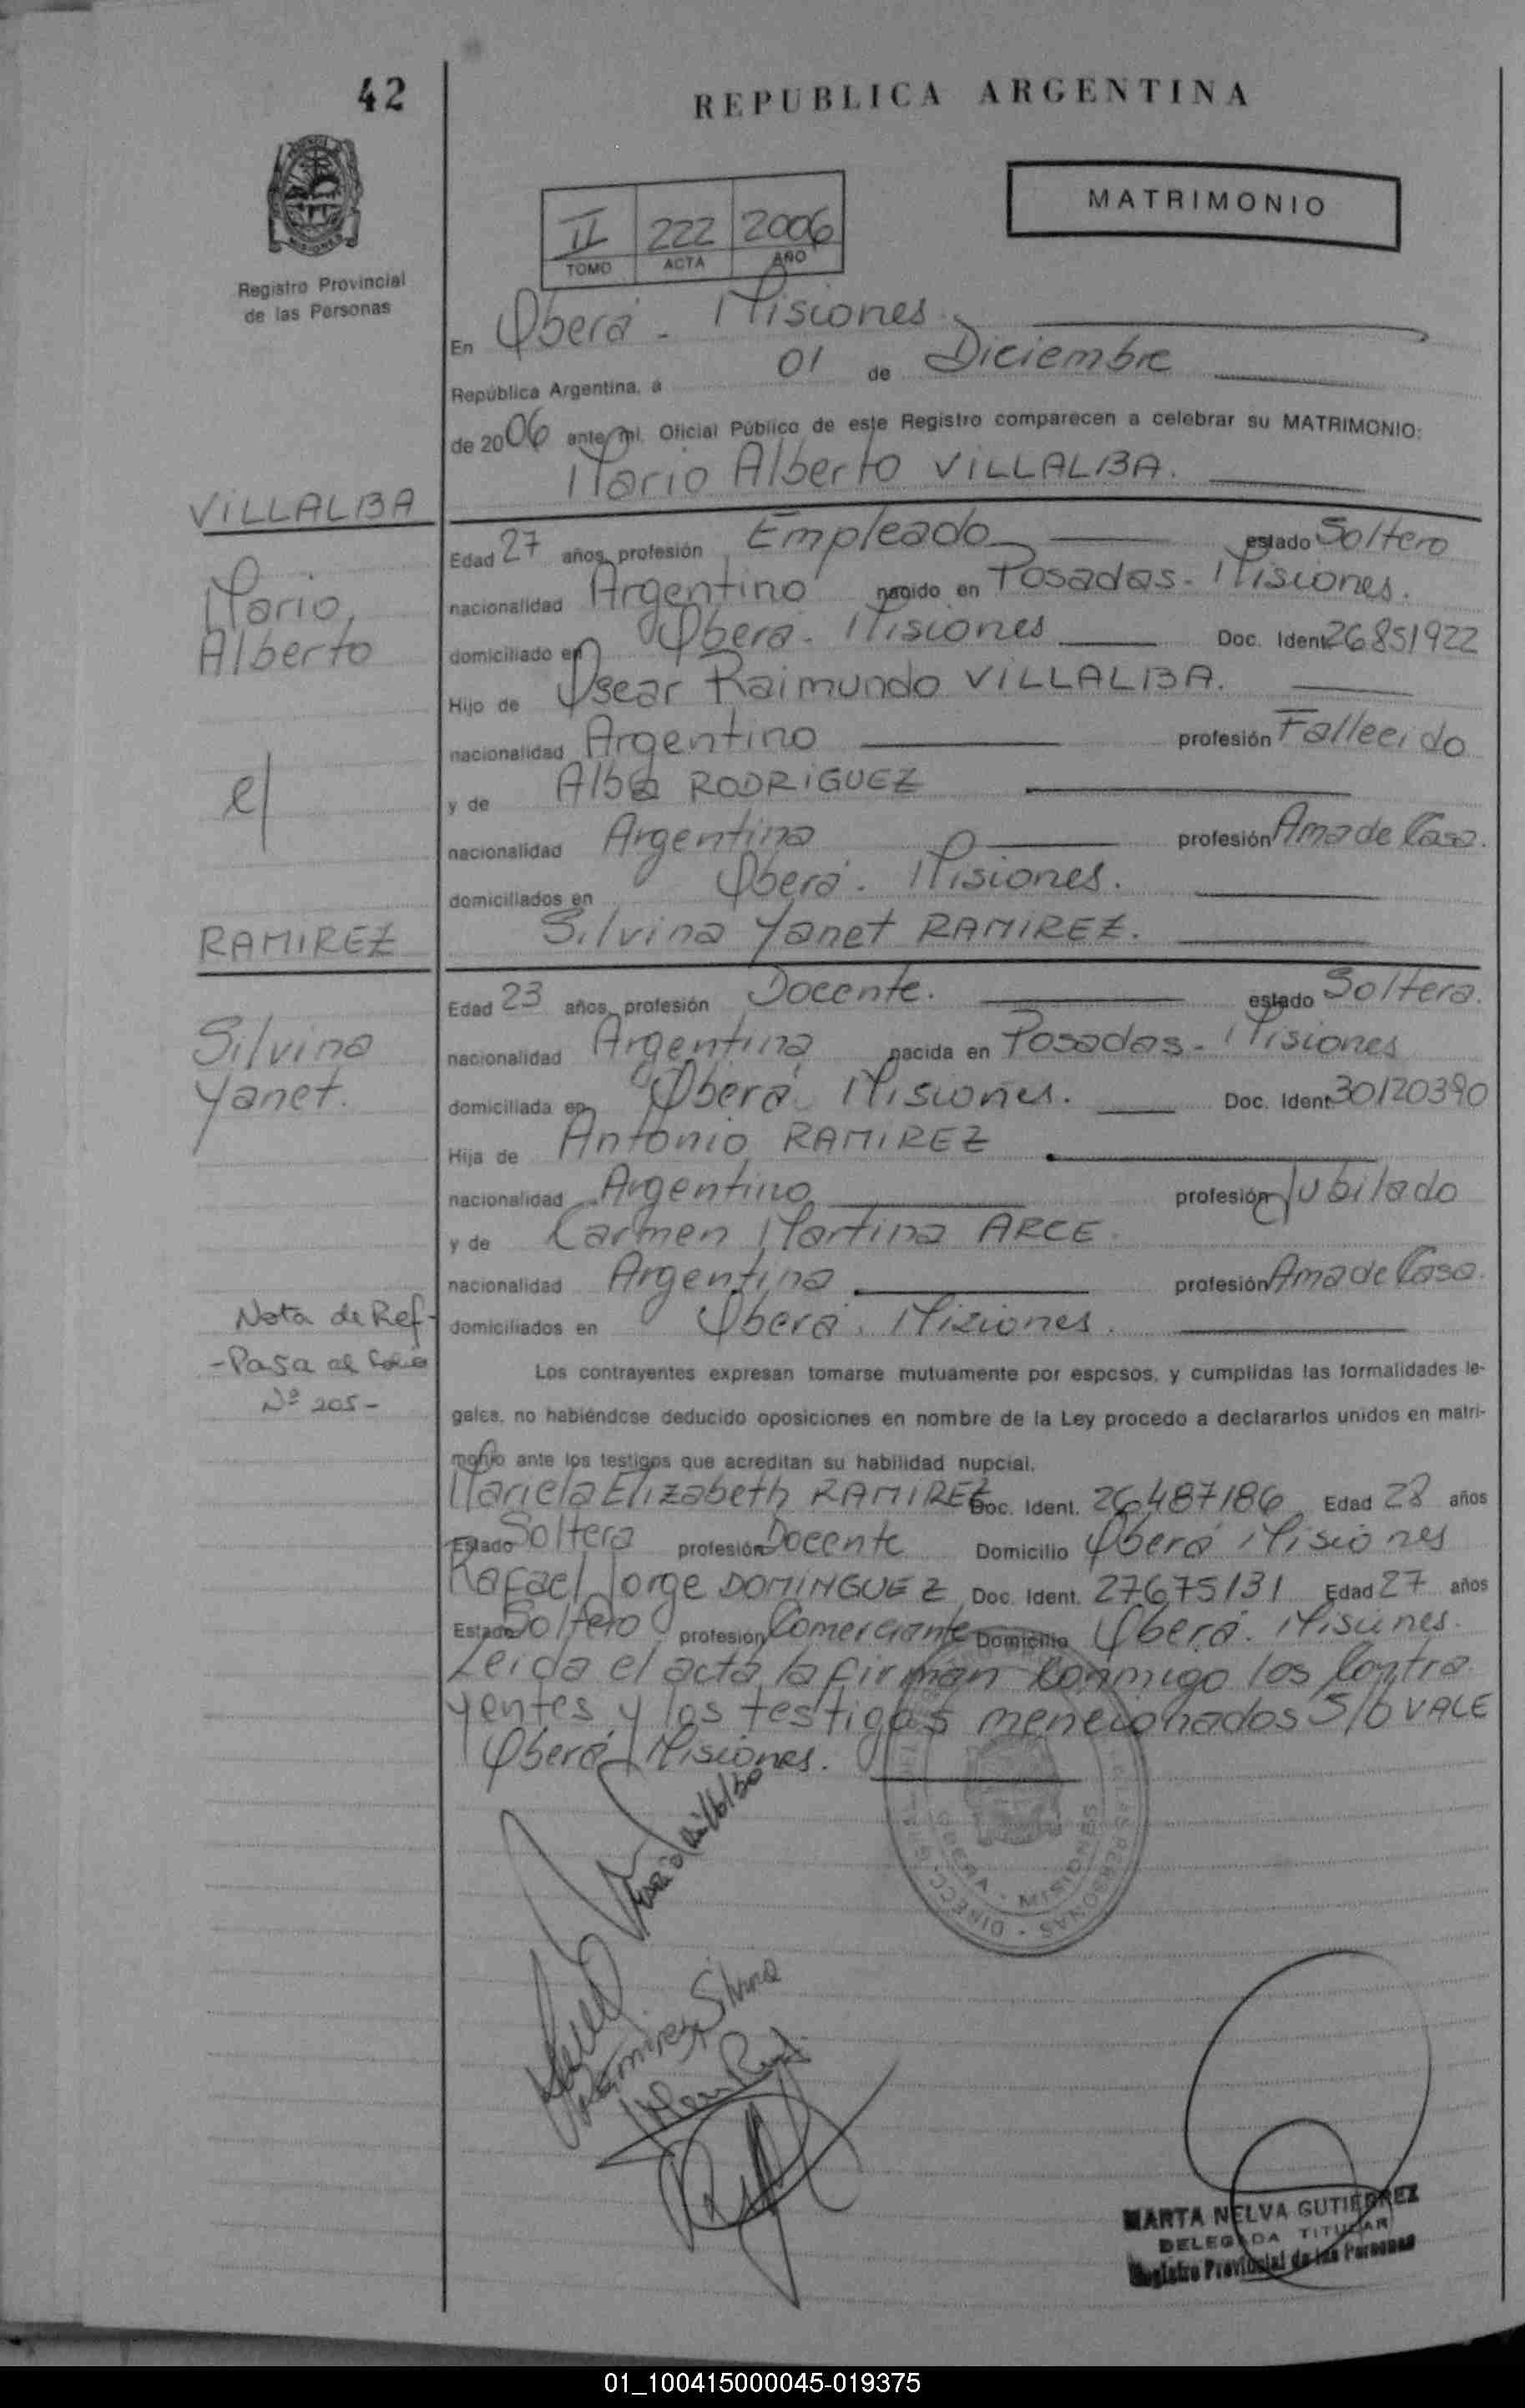 42
REPUBLICA ARGENTINA
MATRIMONIO
II 222 2006
TOMO ACTA AÑO
MISIONES
Registro Provincial
de las Personas
En Oberá - Misiones.
República Argentina, a 01 de Diciembre
de 2006 ante mi, Oficial Público de este Registro comparecen a celebrar su MATRIMONIO:
Mario Alberto VILLALBA.
VILLALBA
Mario,
Alberto
c/
RAMIREZ
Silvina
Yanet.
Nota de Ref-
-Pasa al folio
Nº 205-
Edad 27 años, profesión Empleado estado Soltero
nacionalidad Argentino nacido en Posadas - Misiones.
domiciliado en Oberá - Misiones Doc. Ident. 26851922
Hijo de Oscar Raimundo VILLALBA.
nacionalidad Argentino profesión Fallecido
y de Alba RODRIGUEZ
nacionalidad Argentina profesión Ama de Casa.
domiciliados en Oberá - Misiones.
Silvina Yanet RAMIREZ.
Edad 23 años, profesión Docente. estado Soltera.
nacionalidad Argentina nacida en Posadas - Misiones
domiciliada en Oberá Misiones. Doc. Ident. 30120390
Hija de Antonio RAMIREZ
nacionalidad Argentino profesión Jubilado
y de Carmen Martina ARCE.
nacionalidad Argentina profesión Ama de Casa.
domiciliados en Oberá. Misiones.
Los contrayentes expresan tomarse mutuamente por esposos, y cumplidas las formalidades le-
gales, no habiéndose deducido oposiciones en nombre de la Ley procedo a declararlos unidos en matri-
monio ante los testigos que acreditan su habilidad nupcial.
Mariela Elizabeth RAMIREZ Doc. Ident. 26487186 Edad 28 años
Estado Soltera profesión Docente Domicilio Oberá Misiones
Rafael Jorge DOMINGUEZ Doc. Ident. 27675131 Edad 27 años
Estado Soltero profesión Comerciante Domicilio Oberá. Misiones.
Leida el acta, la firman conmigo los Contra
yentes y los testigos mencionados S/b VALE
Oberá Misiones.
OBERA - MISIONES
Ramirez Silvina
MARTA NELVA GUTIERREZ
DELEGADA TITULAR
Registro Provincial de las Personas
01_100415000045-019375